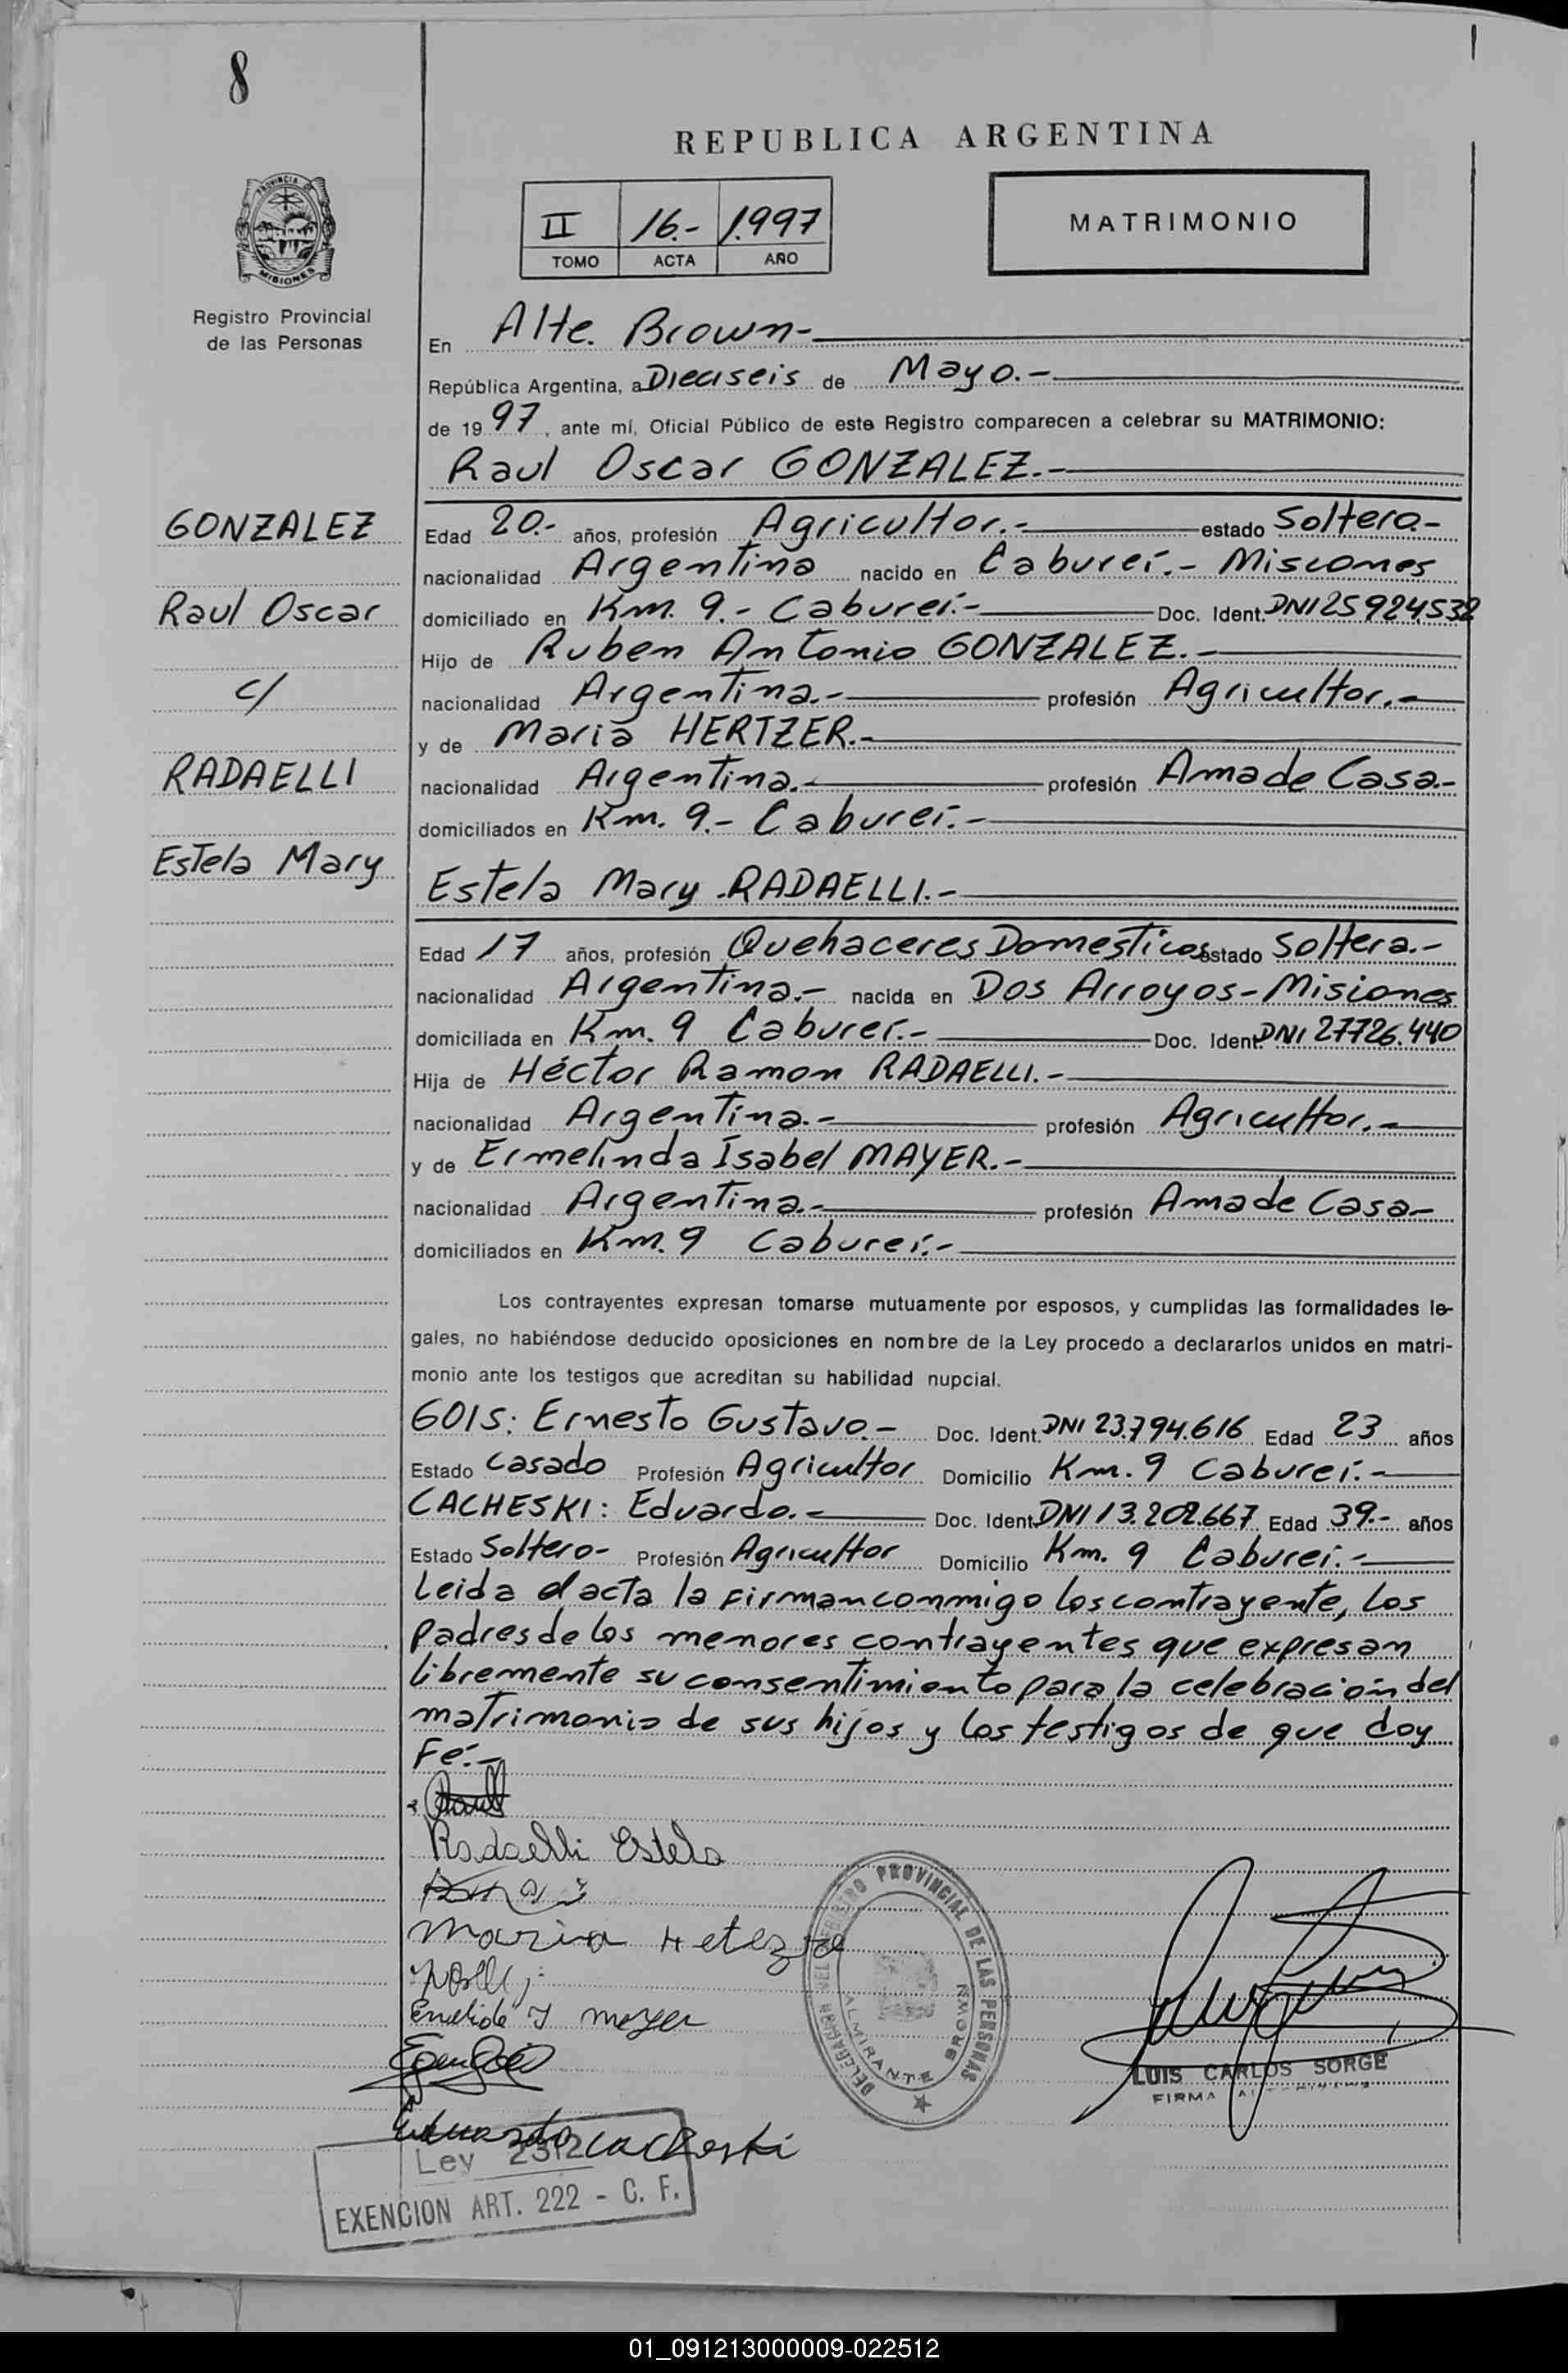 8
REPUBLICA ARGENTINA
PROVINCIA DE
MISIONES
II 16.- 1.997
TOMO ACTA AÑO
MATRIMONIO
Registro Provincial
de las Personas
En Alte. Brown-
República Argentina, a Dieciseis de Mayo.-
de 19 97, ante mí, Oficial Público de este Registro comparecen a celebrar su MATRIMONIO:
Raul Oscar GONZALEZ.-
GONZALEZ
Raul Oscar
c/
RADAELLI
Estela Mary
Edad 20.- años, profesión Agricultor.- estado Soltero-
nacionalidad Argentina nacido en Cabureí.- Misiones
domiciliado en Km. 9.- Cabureí.- Doc. Ident. DNI 25924.532
Hijo de Ruben Antonio GONZALEZ.-
nacionalidad Argentina.- profesión Agricultor.-
y de Maria HERTZER.-
nacionalidad Argentina.- profesión Ama de Casa.-
domiciliados en Km. 9.- Cabureí.-
Estela Mary RADAELLI.-
Edad 17 años, profesión Quehaceres Domesticos estado Soltera.-
nacionalidad Argentina.- nacida en Dos Arroyos-Misiones
domiciliada en Km. 9 Cabureí.- Doc. Ident. DNI 27726.440
Hija de Héctor Ramon RADAELLI.-
nacionalidad Argentina.- profesión Agricultor.-
y de Ermelinda Isabel MAYER.-
nacionalidad Argentina.- profesión Ama de Casa-
domiciliados en Km. 9 Cabureí.-
Los contrayentes expresan tomarse mutuamente por esposos, y cumplidas las formalidades le-
gales, no habiéndose deducido oposiciones en nombre de la Ley procedo a declararlos unidos en matri-
monio ante los testigos que acreditan su habilidad nupcial.
GOIS: Ernesto Gustavo.- Doc. Ident. DNI 23.794.616 Edad 23 años
Estado casado Profesión Agricultor Domicilio Km. 9 Cabureí.-
CACHESKI: Eduardo.- Doc. Ident. DNI 13.202.667 Edad 39.- años
Estado Soltero- Profesión Agricultor Domicilio Km. 9 Cabureí.-
Leida el acta la firman conmigo los contrayente, los
padres de los menores contrayentes que expresan
libremente su consentimiento para la celebración del
matrimonio de sus hijos y los testigos de que doy
Fé.-
Radaelli Estela
Maria
mayer
Eduardo Cacheski
REGISTRO PROVINCIAL DE LAS PERSONAS
ALMIRANTE BROWN
LUIS CARLOS SORGE
FIRMA
Ley 2312
EXENCION ART. 222 - C. F.
01_091213000009-022512